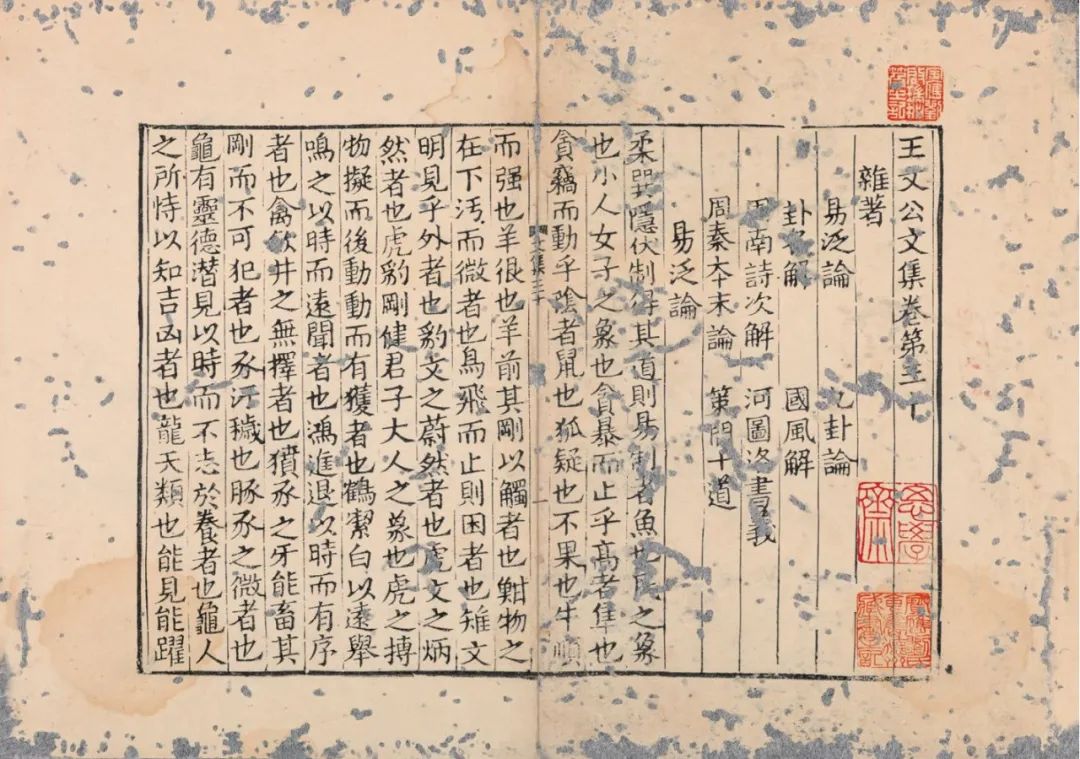 王文公文集卷第三十
雜著
易泛論　九卦論
卦名解　國風解
周南詩次解　河圖洛書義
周秦本末論　策問十道
易泛論
柔巽隱伏制得其道則易制者魚也民之象
也小人女子之象也貪暴而止乎高者隼也
貪竊而動乎陰者鼠也狐疑也不果也牛順
而强也羊很也羊前其剛以觸者也䵻物之
在下汚而微者也鳥飛而止則困者也雉文
明見乎外者也豹文之蔚然者也虎文之炳
然者也虎豹剛健君子大人之象也虎之搏
物擬而後動動而有獲者也鶴潔白以遠舉
鳴之以時而遠聞者也鴻進退以時而有序
者也禽飲井之無擇者也豶豕之牙能畜其
剛而不可犯者也豕汚穢也豚豕之微者也
龜有靈德潛見以時而不志於養者也龜人
之所恃以知吉凶者也龍天類也能見能躍